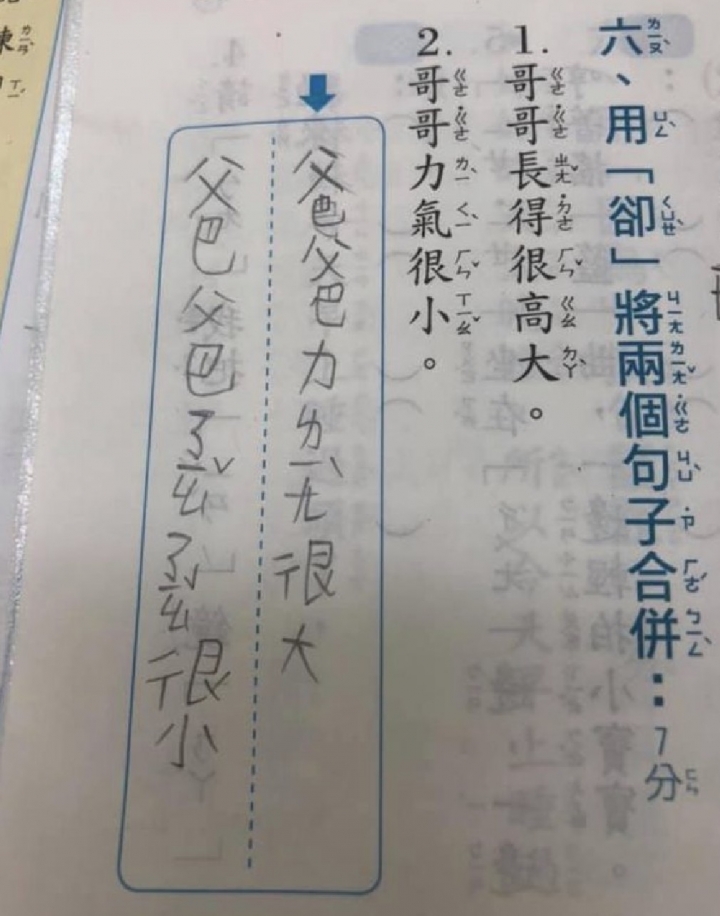 六、用「卻」將兩個句子合併:7分
1.哥哥長得很高大。
2.哥哥力氣很小。
爸爸力ㄌㄧㄤˋ很大
爸爸ㄋㄧㄠˇㄋㄧㄠˇ很小